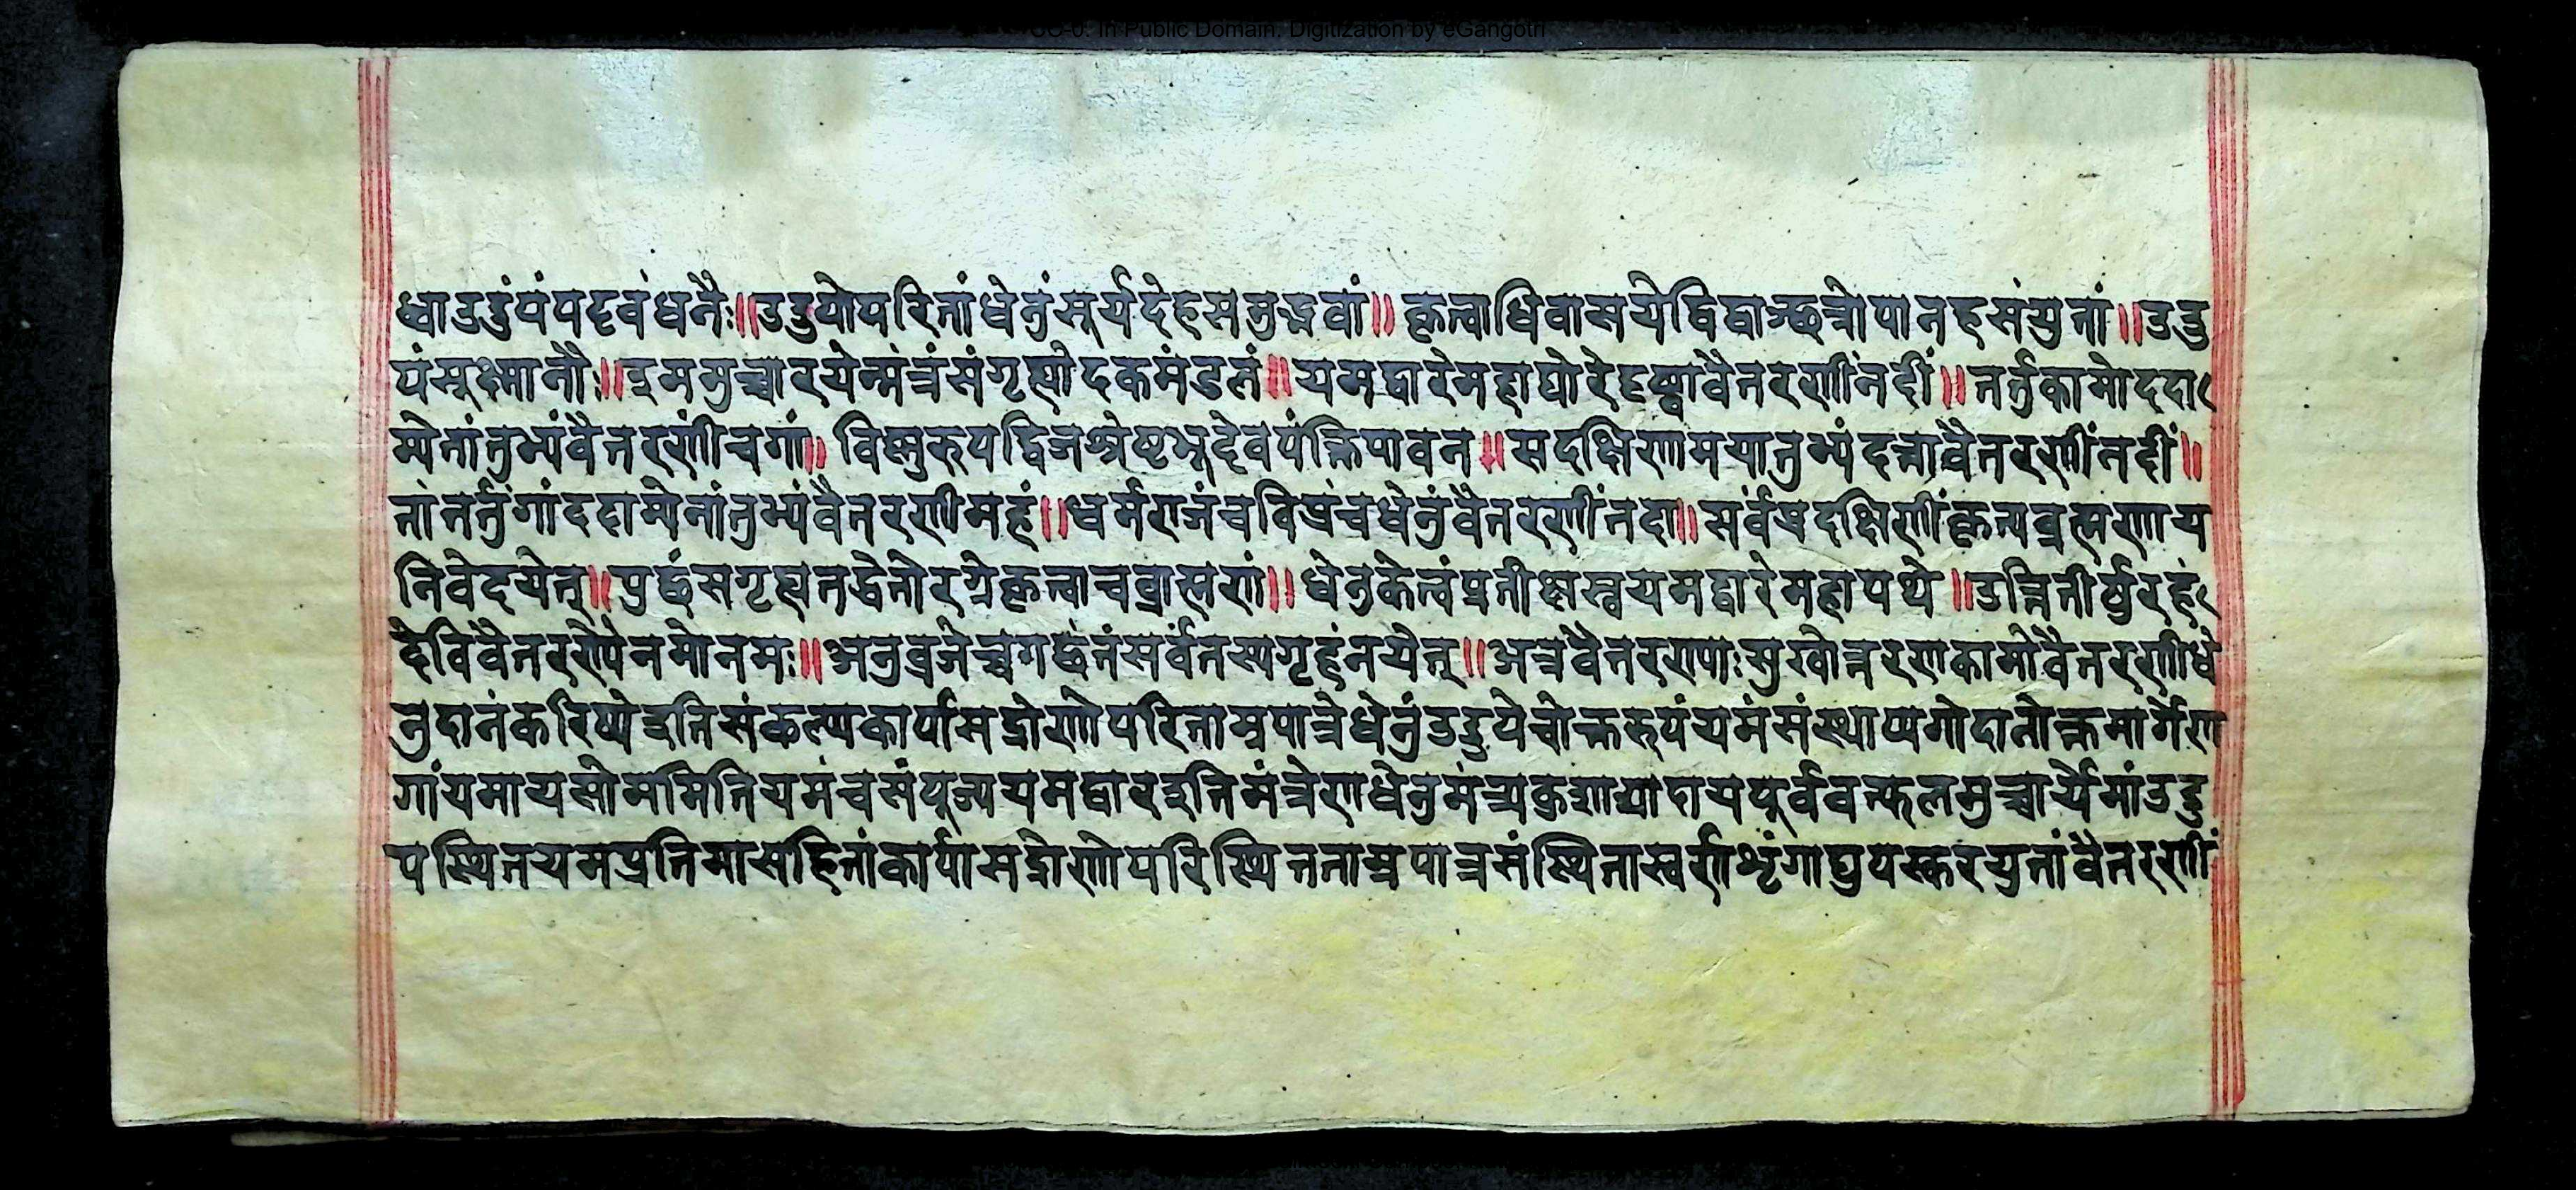 CC-0. In Public Domain. Digitization by eGangotri
ध्वाउडुंपंपट्टवंधनैः॥उडुपोपरितांधेनुंसूर्यदेहसमुद्भवां॥कृत्वाधिवासयेद्विद्वाञ्छत्रोपानहसंयुतां॥उडु
पंसूक्ष्मानौः॥इममुच्चारयेन्मंत्रंसंगृह्योदकमंडलं॥यमद्वारेमहाघोरेदृष्ट्वावैतरणींनदीं॥तर्तुकामोददा
म्येतांतुभ्यंवैतरणींचगां॥विष्णुरुपद्विजश्रेष्ठभूदेवपंक्तिपावन॥सदक्षिणामयातुभ्यंदत्तावैतरणींनदीं॥
तांतर्तुंगांददाम्येतांतुभ्यंवैतरणीमहं॥धर्मराजंचविप्रंचधेनुंवैतरणींतदा॥सर्वंप्रदक्षिणींकृत्यब्रह्मणाय
निवेदयेत्॥पुछंसगृह्यतद्धेनोरग्रेकृत्वाचब्राह्मणं॥धेनुकेत्वंप्रतीक्षस्वयमद्वारेमहापथे॥उत्तितीर्षुरहं
देविवैतरण्यैनमोनमः॥अनुव्रजेच्चगछंतंसर्वंतस्यगृहंनयेत्॥अत्रवैतरण्याःसुखोत्तरणकामोवैतरणीधे
नुदानंकरिष्येइतिसंकल्प्यकार्पासद्रोणोपरिताम्रपात्रेधेनुंउडुपेचोक्तरुपंयमंसंस्थाप्यगोदानोक्तमार्गेण
गांयमायसोममितियमंचसंपूज्ययमद्वारइतिमंत्रेणधेनुमंत्र्यकुशाद्यादायपूर्ववत्फलमुच्चार्येमांउडु
पस्थितयमप्रतिमासहितांकार्पासद्रोणोपरिस्थितताम्रपात्रसंस्थितास्वर्णशृंगाद्युपस्करयुतांवैतरणीं